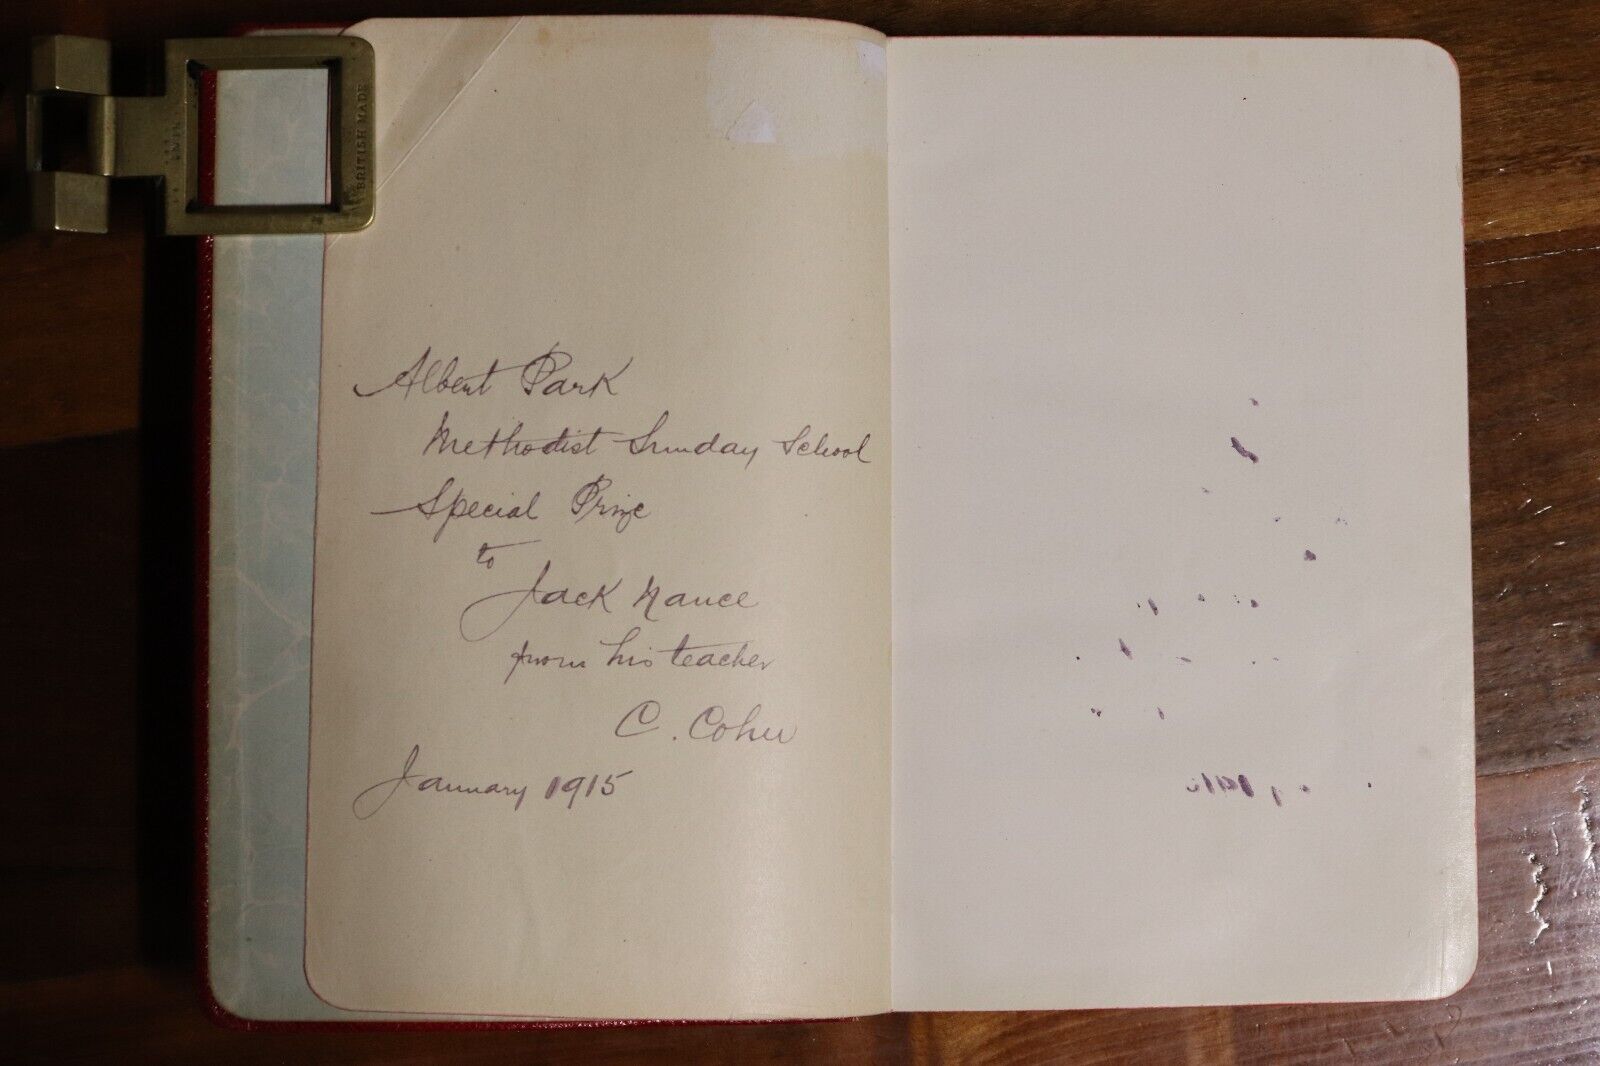 BRITISH MADE
Albert Park
Methodist Sunday School
Special Prize
to
Jack Nance
from his teacher
C. Cohu
January 1915